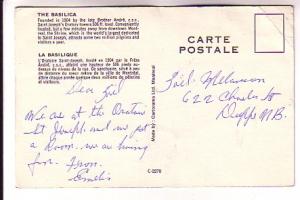 THE BASILICA
Founded in 1904 by the late Brother André, c.s.c.
Saint Joseph's Oratory towers 506 ft. Conveniently
located, but a few minutes away from downtown Mont-
real the Shrine, which is the world's greatest dedicated
to Saint-Joseph, attracts some two million pilgrims and
visitors a year.
LA BASILIQUE
L'Oratoire Saint-Joseph, fondé en 1904 par le Frère
André, c.s.c., atteint une hauteur de 506 pieds
au-dessus du niveau de la rue. Ce sanctuaire, situé
à peine de distance du coeur même de la ville de Montréal,
attire chaque année plus de deux millions de pèlerins
et visiteurs.
CARTE
POSTALE
Dear Gail
We are at the Oratory
St Joseph and we got
a room. we are having
fun. From
Gail
622 Charles St
Dieppe N.B.
Montreal
C-2270